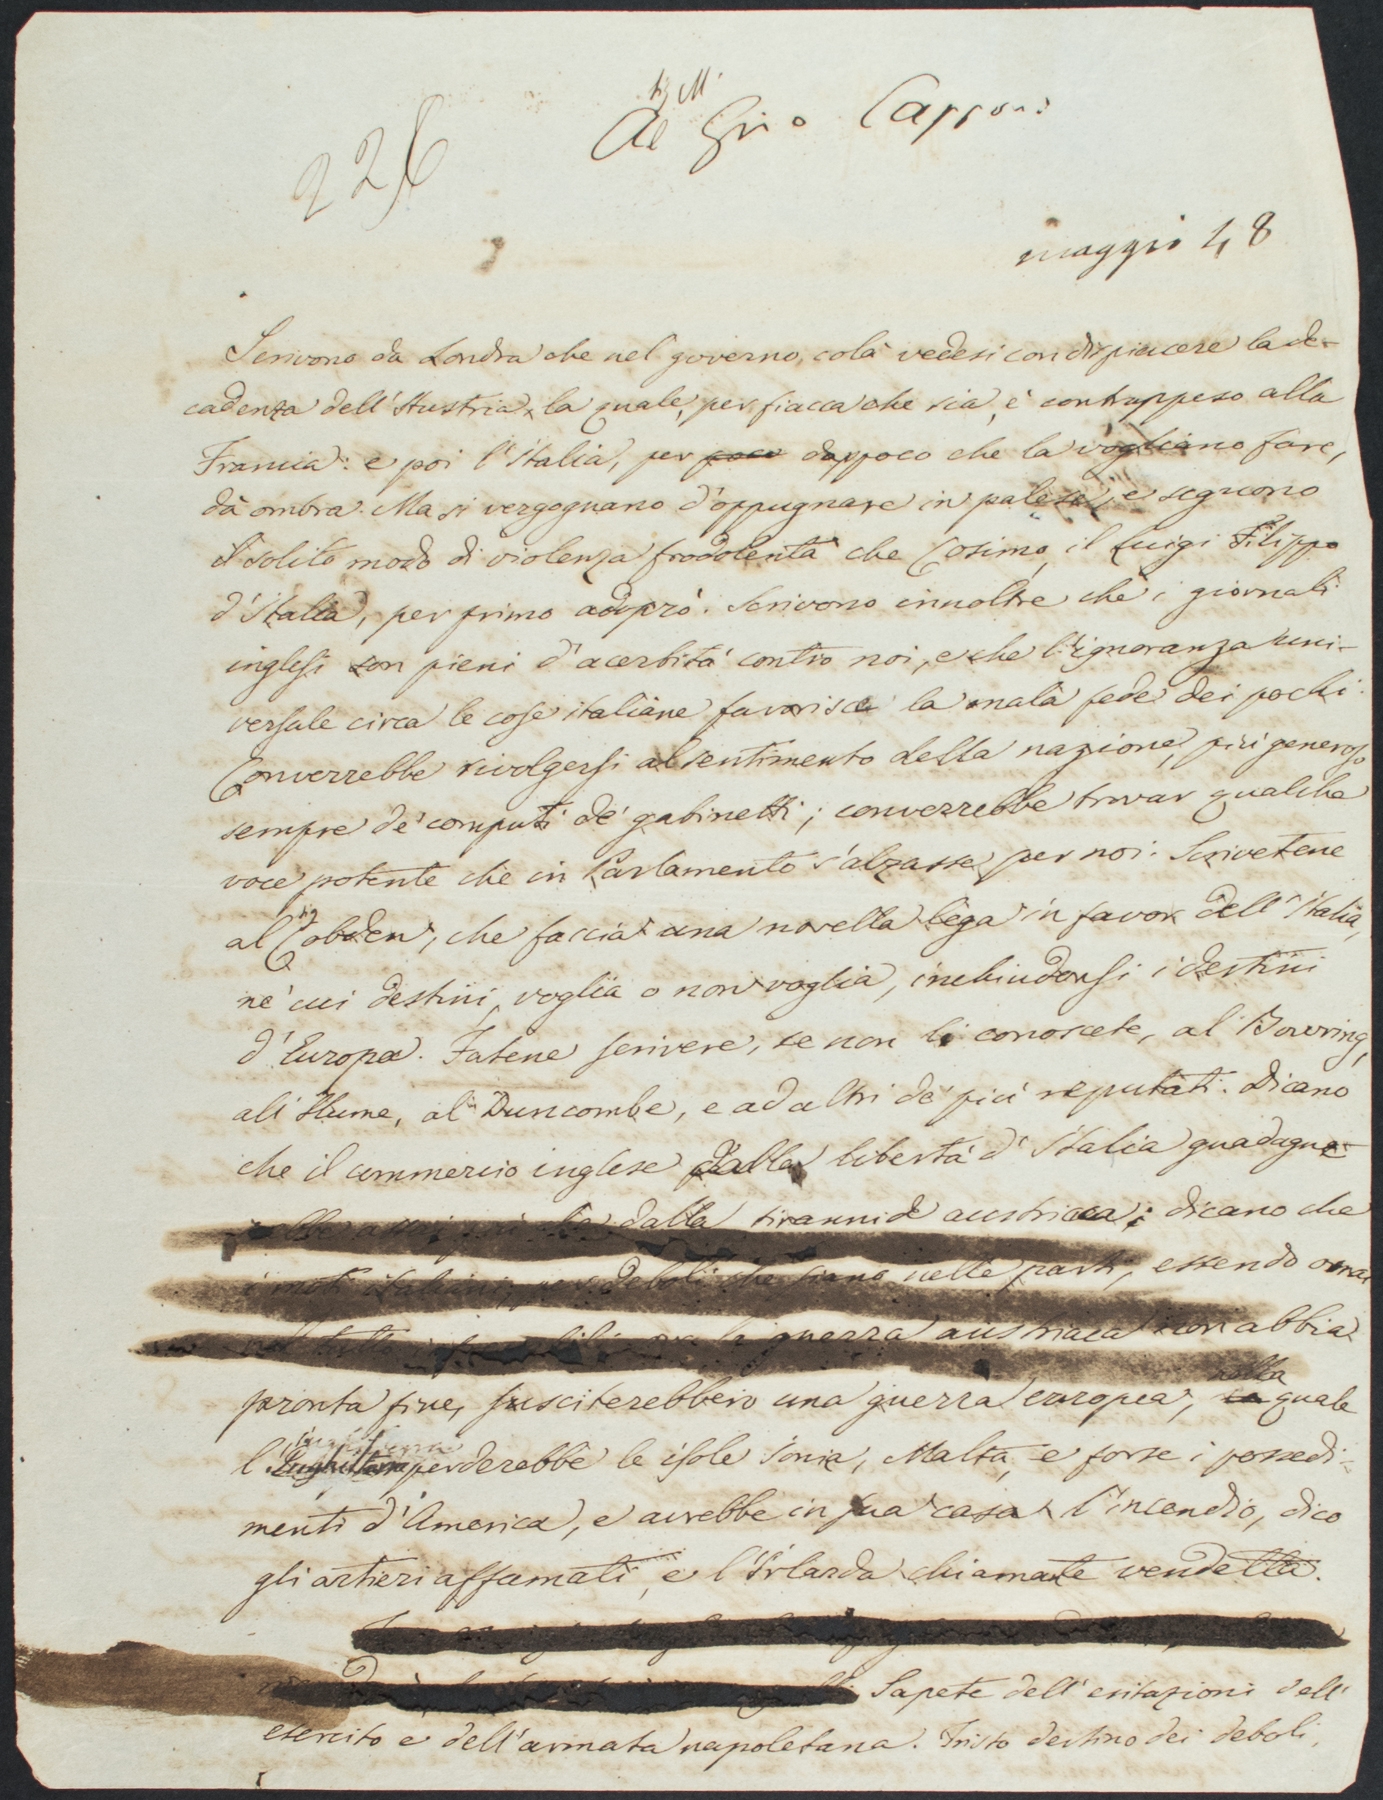 226
Al M.
Gino Capponi
maggio 48
Scrivono da Londra che nel governo colà vedesi con dispiacere la de-
cadenza dell'Austria, la quale, per fiacca che sia, è contrappeso alla
Francia: e poi l'Italia, per poco dappoco che la vogliano fare,
dà ombra. Ma si vergognano d'oppugnare in palese; e seguono
il solito modo di violenza frodolenta che Cosimo, il Luigi Filippo
d'Italia, per primo adoprò. Scrivono innoltre che i giornali
inglesi son pieni d'acerbità contro noi, e che l'ignoranza uni-
versale circa le cose italiane favorisce la mala fede dei pochi.
Converrebbe rivolgersi al sentimento della nazione, più generoso
sempre de' computi de' gabinetti; converrebbe trovar qualche
voce potente che in Parlamento s'alzasse per noi. Scrivetene
al Cobden, che faccia una novella lega in favor dell'Italia,
ne' cui destini, voglia o non voglia, inchiudonsi i destini
d'Europa. Fatene scrivere, se non li conoscete, al Bowring,
all'Hume, al Duncombe, e ad altri de' più reputati. Dicano
che il commercio inglese dalla libertà d'Italia guadagne-
rebbe assai più che dalla tirannide austriaca; dicano che
i moti italiani, per deboli che siano nelle parti, essendo omai
nel tutto, ove la guerra austriaca non abbia
pronta fine, susciterebbero una guerra europea, la nella quale
l'Inghilterra perderebbe le isole Ionie, Malta, e forse i possedi-
menti d'America, e avrebbe in sua casa l'incendio, dico
gli artieri affamati, e l'Irlanda chiamante vendetta.
Sapete dell'esitazioni dell'
esercito e dell'armata napoletana. Tristo destino dei deboli,